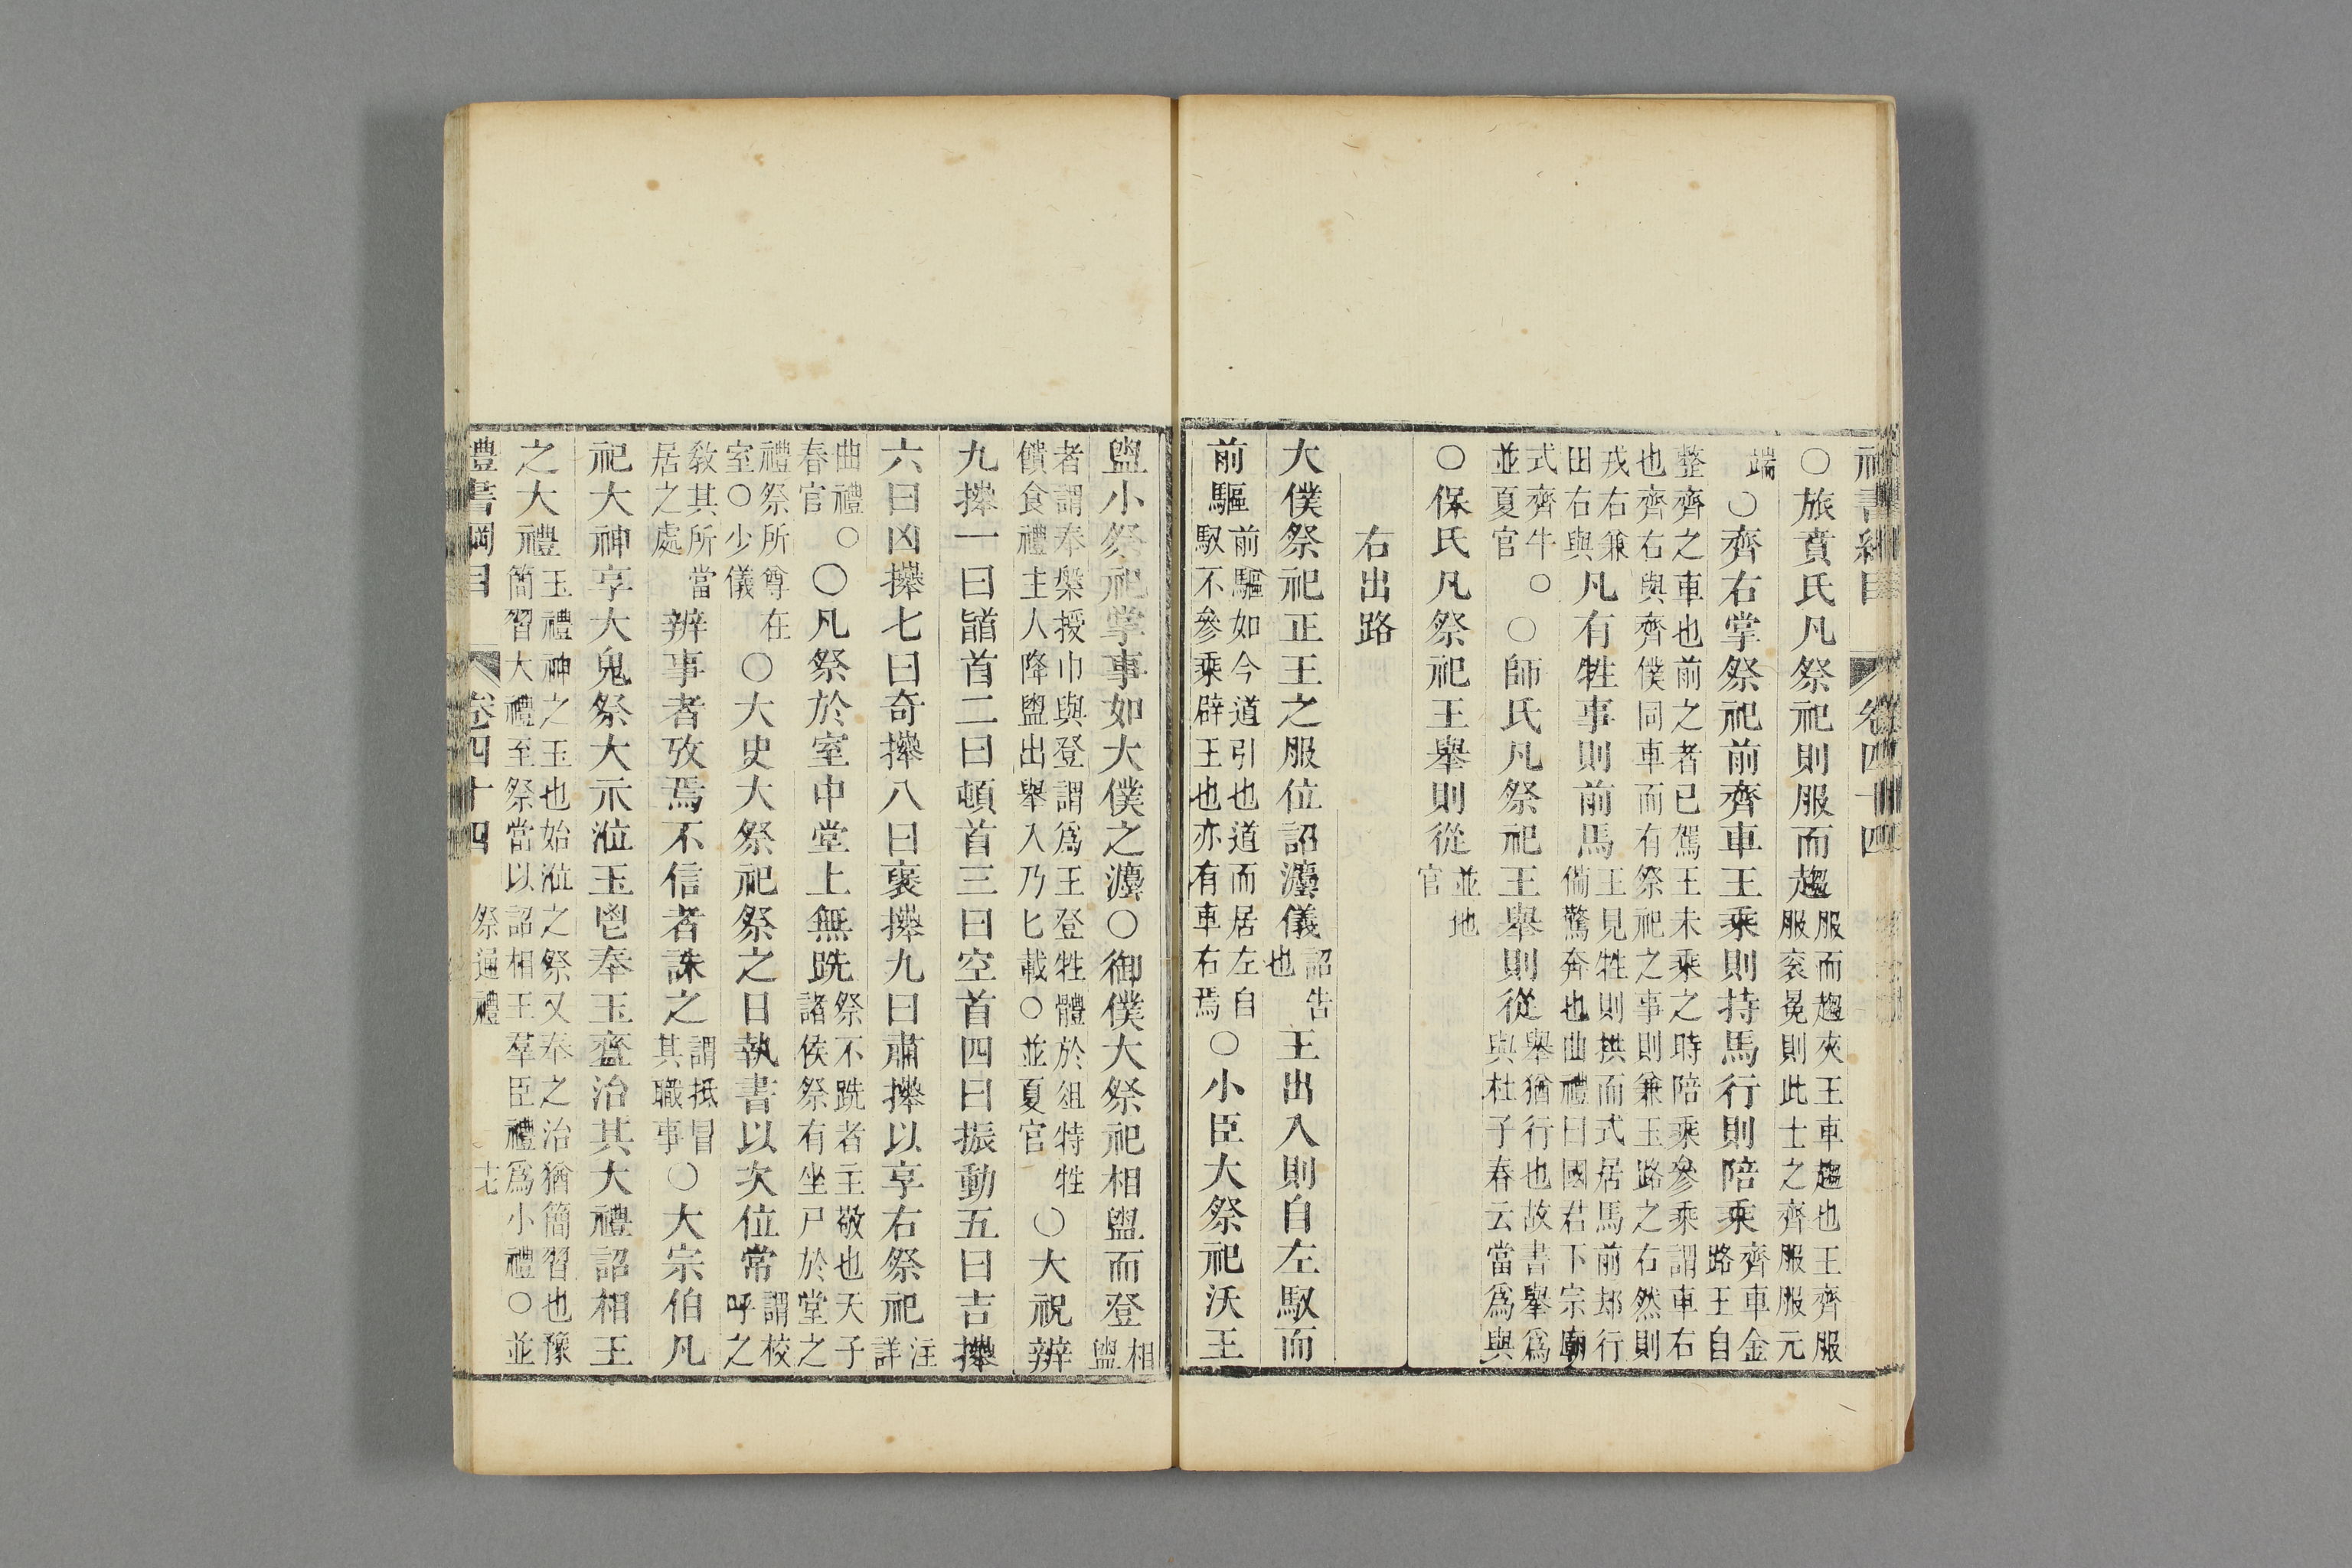 禮書綱目 卷四十四
○旅賁氏凡祭祀則服而趨服而趨夾王車趨也王齊服服衮冕則此士之齊服服元
端○齊右掌祭祀前齊車王乘則持馬行則陪乘齊車金路王自
整齊之車也前之者已駕王未乘之時陪乘參乘謂車右也齊右與齊僕同車而有祭祀之事則兼玉路之右然則
戎右兼田右與凡有牲事則前馬王見牲則拱而式居馬前却行備驚奔也曲禮曰國君下宗廟
式齊牛○並夏官○師氏凡祭祀王舉則從舉猶行也故書舉爲與杜子春云當爲與
○保氏凡祭祀王舉則從並地官
右出路
大僕祭祀正王之服位詔灋儀詔告也王出入則自左馭而
前驅前驅如今道引也道而居左自馭不參乘辟王也亦有車右焉○小臣大祭祀沃王
盥小祭祀掌事如大僕之灋○御僕大祭祀相盥而登相盥
者謂奉槃授巾與登謂爲王登牲體於俎特牲饋食禮主人降盥出舉入乃匕載○並夏官○大祝辨
九𢷎一曰䭫首二曰頓首三曰空首四曰振動五曰吉𢷎
六曰凶𢷎七曰奇𢷎八曰襃𢷎九曰肅𢷎以享右祭祀注詳
曲禮○春官○凡祭於室中堂上無跣祭不跣者主敬也天子諸侯祭有坐尸於堂之
禮祭所尊在室○少儀○大史大祭祀祭之日執書以次位常謂校呼之
敎其所當居之處辨事者攷焉不信者誅之謂抵冒其職事○大宗伯凡
祀大神享大鬼祭大示涖玉鬯奉玉齍治其大禮詔相王
之大禮玉禮神之玉也始涖之祭又奉之治猶簡習也豫簡習大禮至祭當以詔相王羣臣禮爲小禮○並
禮書綱目 卷四十四 祭通禮 十七